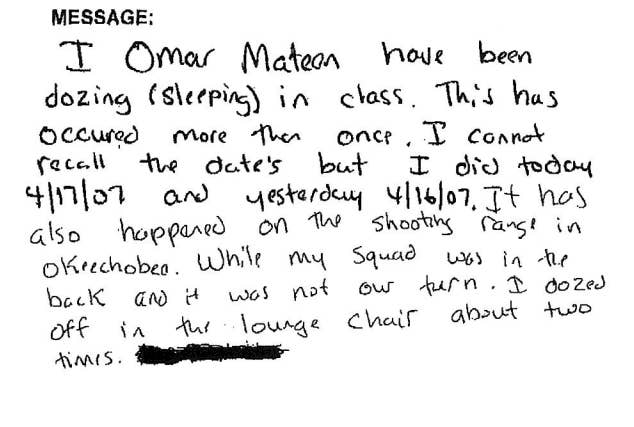 MESSAGE:
I Omar Mateen have been
dozing (sleeping) in class. This has
occured more then once. I cannot
recall the date's but I did today
4/17/07 and yesterday 4/16/07. It has
also happened on the shooting range in
Okeechobee. While my Squad was in the
back and it was not our turn. I dozed
off in the lounge chair about two
times.